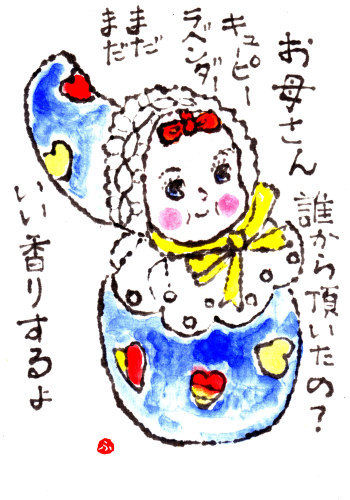 お母さん
誰から頂いたの?
キューピー
ラベンダー
まだ
まだ
いい香りするよ
ふ